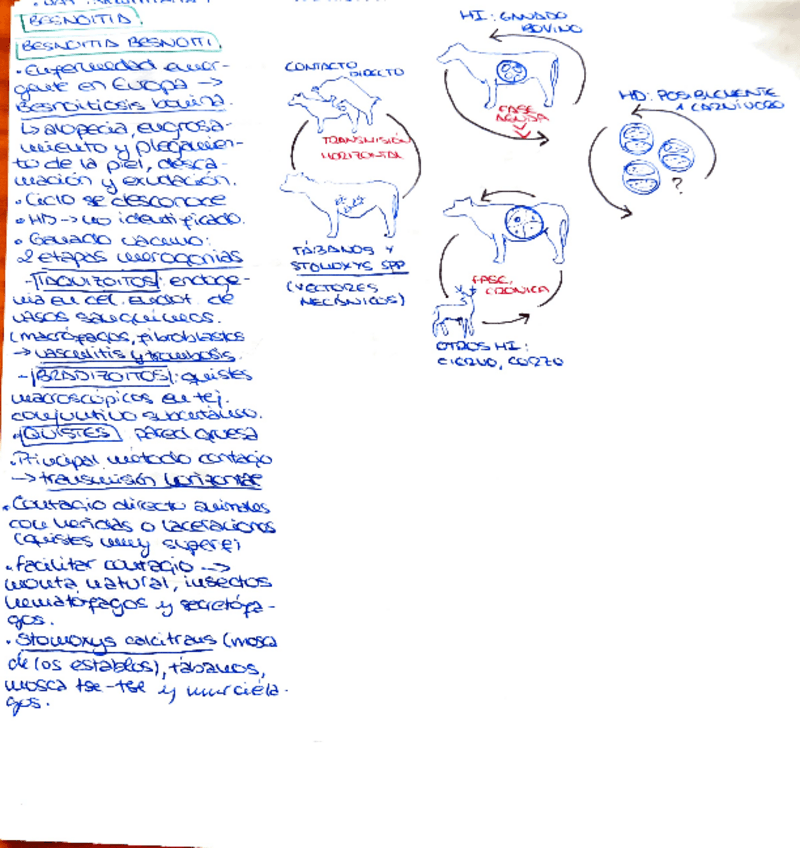 BESNOITIA.
BESNOITIA BESNOITI.
• Enfermedad emer-
gente en Europa →
Besnoitiosis bovina.
↳ alopecia, engrosa-
miento y plegamien-
to de la piel, desca-
mación y exudación.
• Ciclo se desconoce
• HD → no identificado.
• Ganado vacuno:
2 etapas merogonias
- TAQUIZOITOS: endoge-
nia en cel. endot. de
vasos sanguíneos.
(macrófagos, fibroblastos
→ vasculitis y trombosis.
- BRADIZOITOS: quistes
macroscópicos en tej.
conjuntivo subcutáneo.
QUISTES pared gruesa
• Principal método contagio
→ transmisión horizontal
• Contagio directo animales
con heridas o laceraciones
(quistes muy superf)
• Facilitar contagio →
monta natural, insectos
hematófagos y secretófa-
gos.
• Stomoxys calcitrans (mosca
de los establos), tábanos,
mosca tse-tse y murciéla-
gos.
CONTACTO
DIRECTO
TRANSMISIÓN
HORIZONTAL
TÁBANOS Y
STOMOXYS SPP
(VECTORES
MECÁNICOS)
HI: GANADO
BOVINO
FASE
AGUDA
HD: POSIBLEMENTE
1 CARNÍVORO
?
FASE
CRÓNICA
OTROS HI:
CIERVO, CORZO